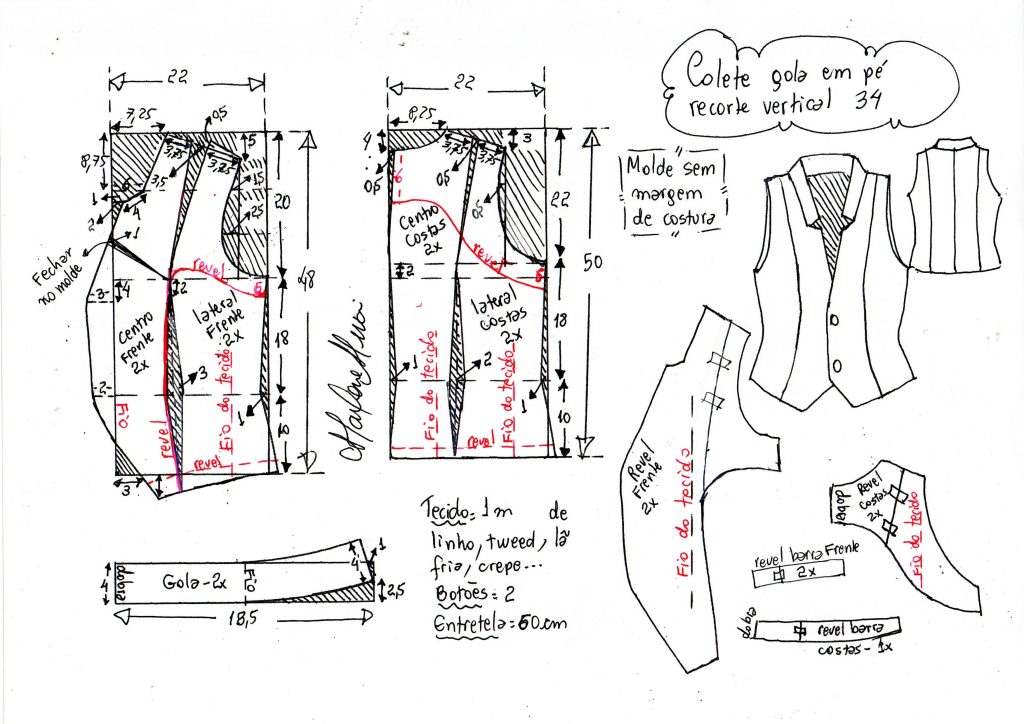 Colete gola em pé
recorte vertical 34
Molde sem
margem
de costura
22
7,25
0,5
8,75
3,75
3,75
3,5
5
1
6
2
4
1
15
25
20
48
Fechar
no molde
revel
6
3
4
2
Centro
Frente
2x
lateral
Frente
2x
18
3
2
1
Fio
revel
Fio do tecido
10
revel
3
1
22
8,25
4
3,75
3
0,5
0,5
6
22
50
Centro
Costas
2x
revel
2
lateral
costas
2x
18
1
2
1
10
Fio do tecido
Fio do tecido
revel
dobra
4
Gola-2x
Fio
4
1
2,5
18,5
Tecido=1m de
linho, tweed, lã
fria, crepe...
Botões=2
Entretela=60cm
Revel
Frente
2x
Fio do tecido
dobra
Revel
costas
2x
Fio do tecido
revel barra Frente
2x
dobra
revel barra
costas-1x